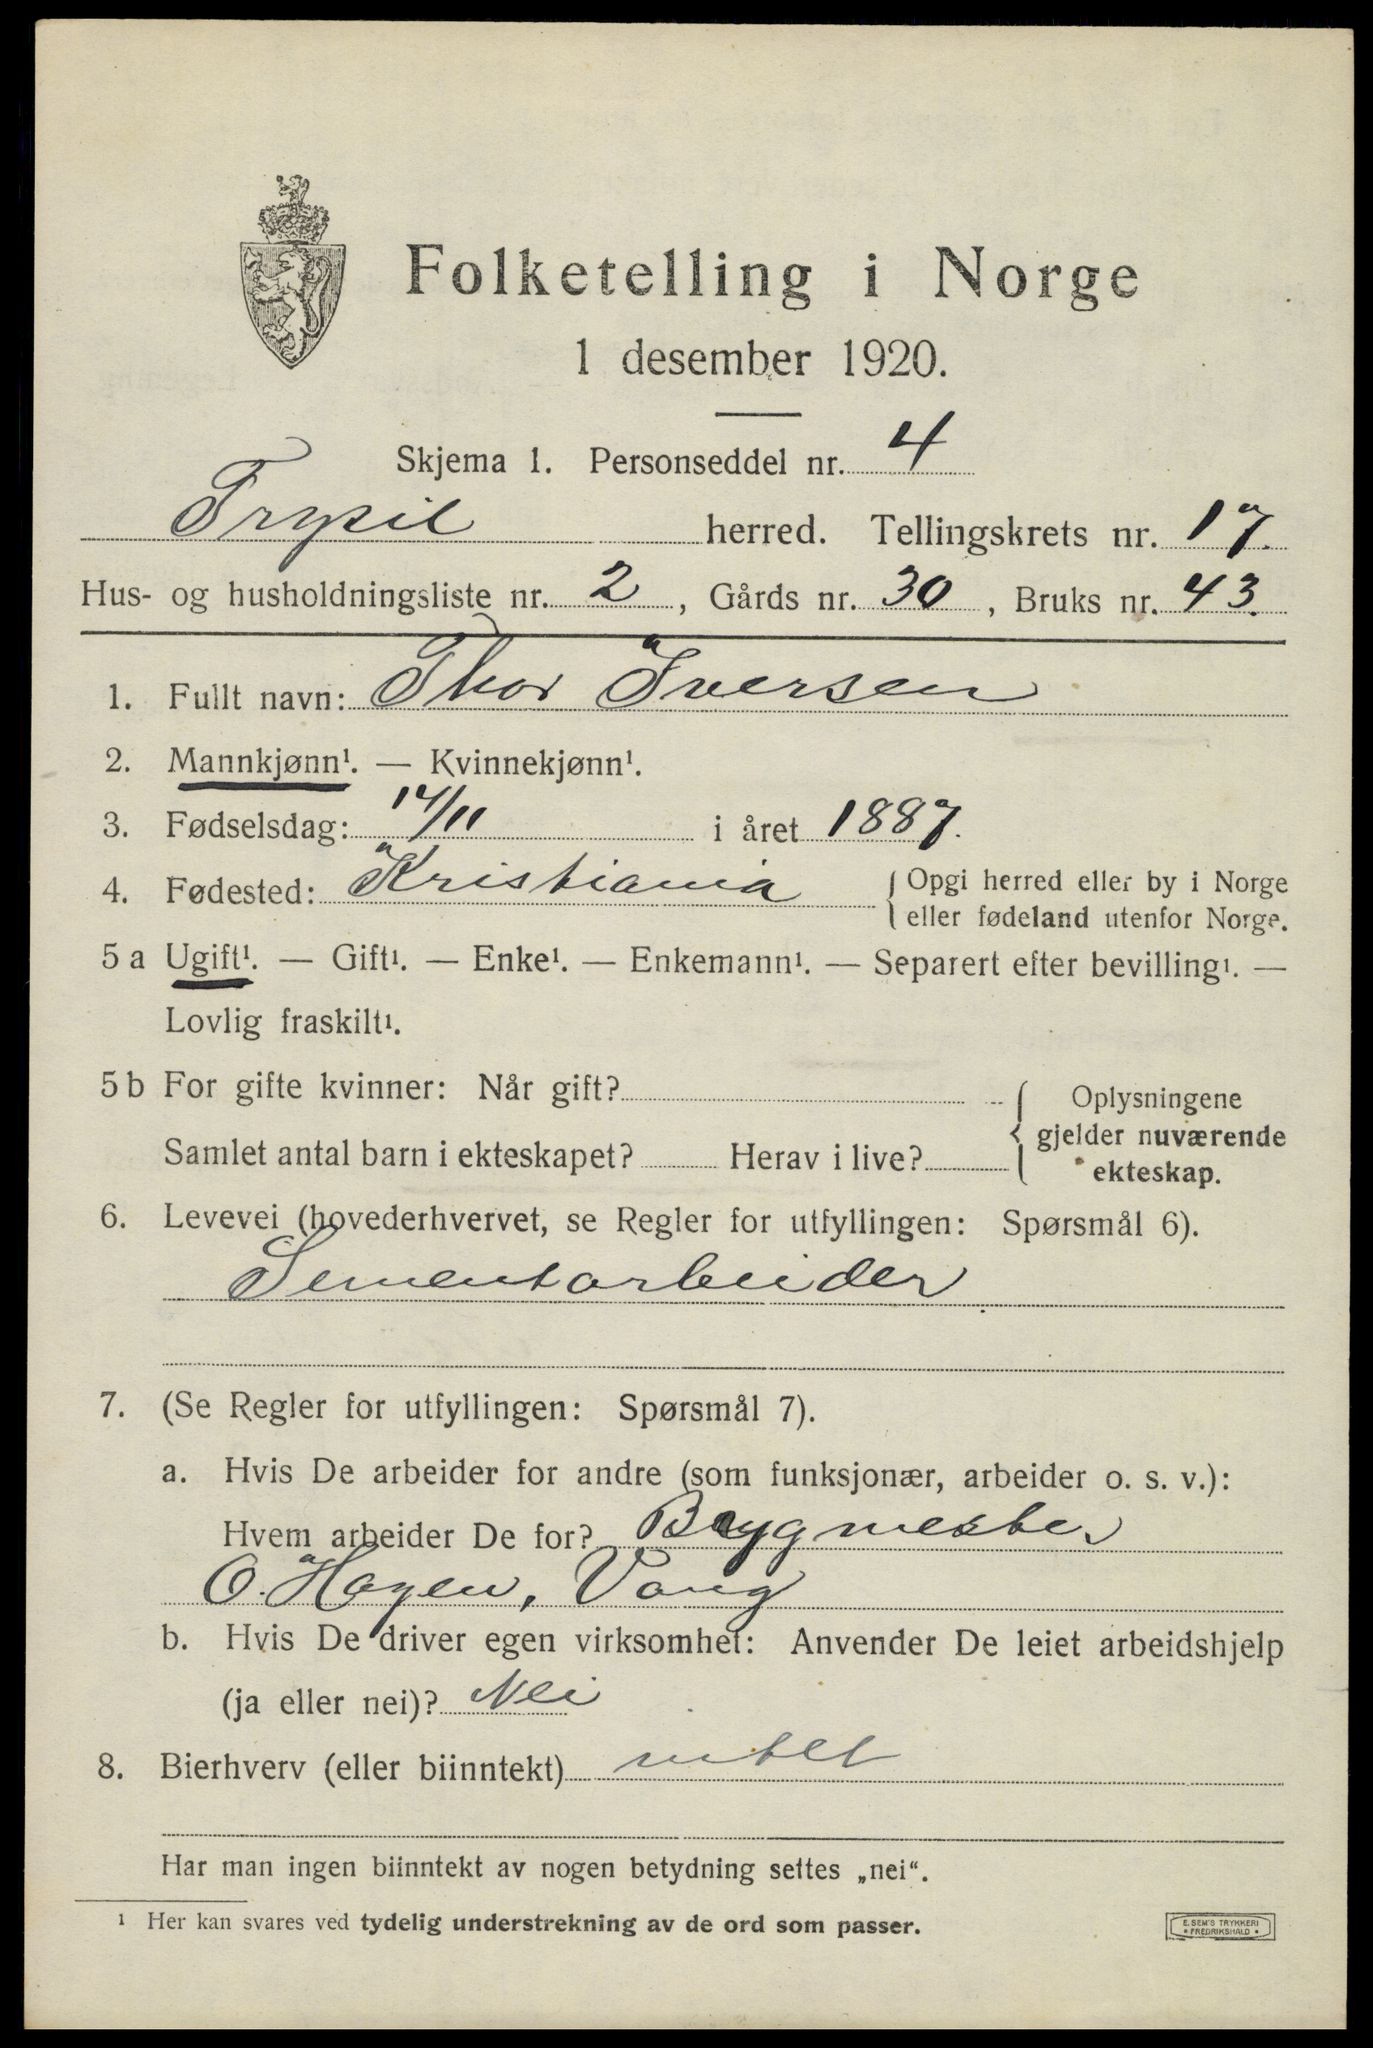 Folketelling i Norge
1 desember 1920.
Skjema 1. Personseddel nr. 4
Trysil herred. Tellingskrets nr. 17.
Hus- og husholdningsliste nr. 2, Gårds nr. 30, Bruks nr. 43.
1. Fullt navn: Thor Iversen
2. Mannkjønn¹. — Kvinnekjønn¹.
3. Fødselsdag: 14/11 i året 1887.
4. Fødested: Kristiania { Opgi herred eller by i Norge
eller fødeland utenfor Norge.
5 a Ugift¹. — Gift¹. — Enke¹. — Enkemann¹. — Separert efter bevilling¹. —
Lovlig fraskilt¹.
5 b For gifte kvinner: Når gift?
Samlet antal barn i ekteskapet? Herav i live?
{ Oplysningene
gjelder nuværende
ekteskap.
6. Levevei (hovederhvervet, se Regler for utfyllingen: Spørsmål 6).
Sementarbeider
7. (Se Regler for utfyllingen: Spørsmål 7).
a. Hvis De arbeider for andre (som funksjonær, arbeider o. s. v.):
Hvem arbeider De for? Bygmester
O. Hagen, Vang
b. Hvis De driver egen virksomhet: Anvender De leiet arbeidshjelp
(ja eller nei)? Nei
8. Bierhverv (eller biinntekt) intet
Har man ingen biinntekt av nogen betydning settes „nei“.
¹ Her kan svares ved tydelig understrekning av de ord som passer.
E. SEM'S TRYKKERI
• FREDRIKSHALD •